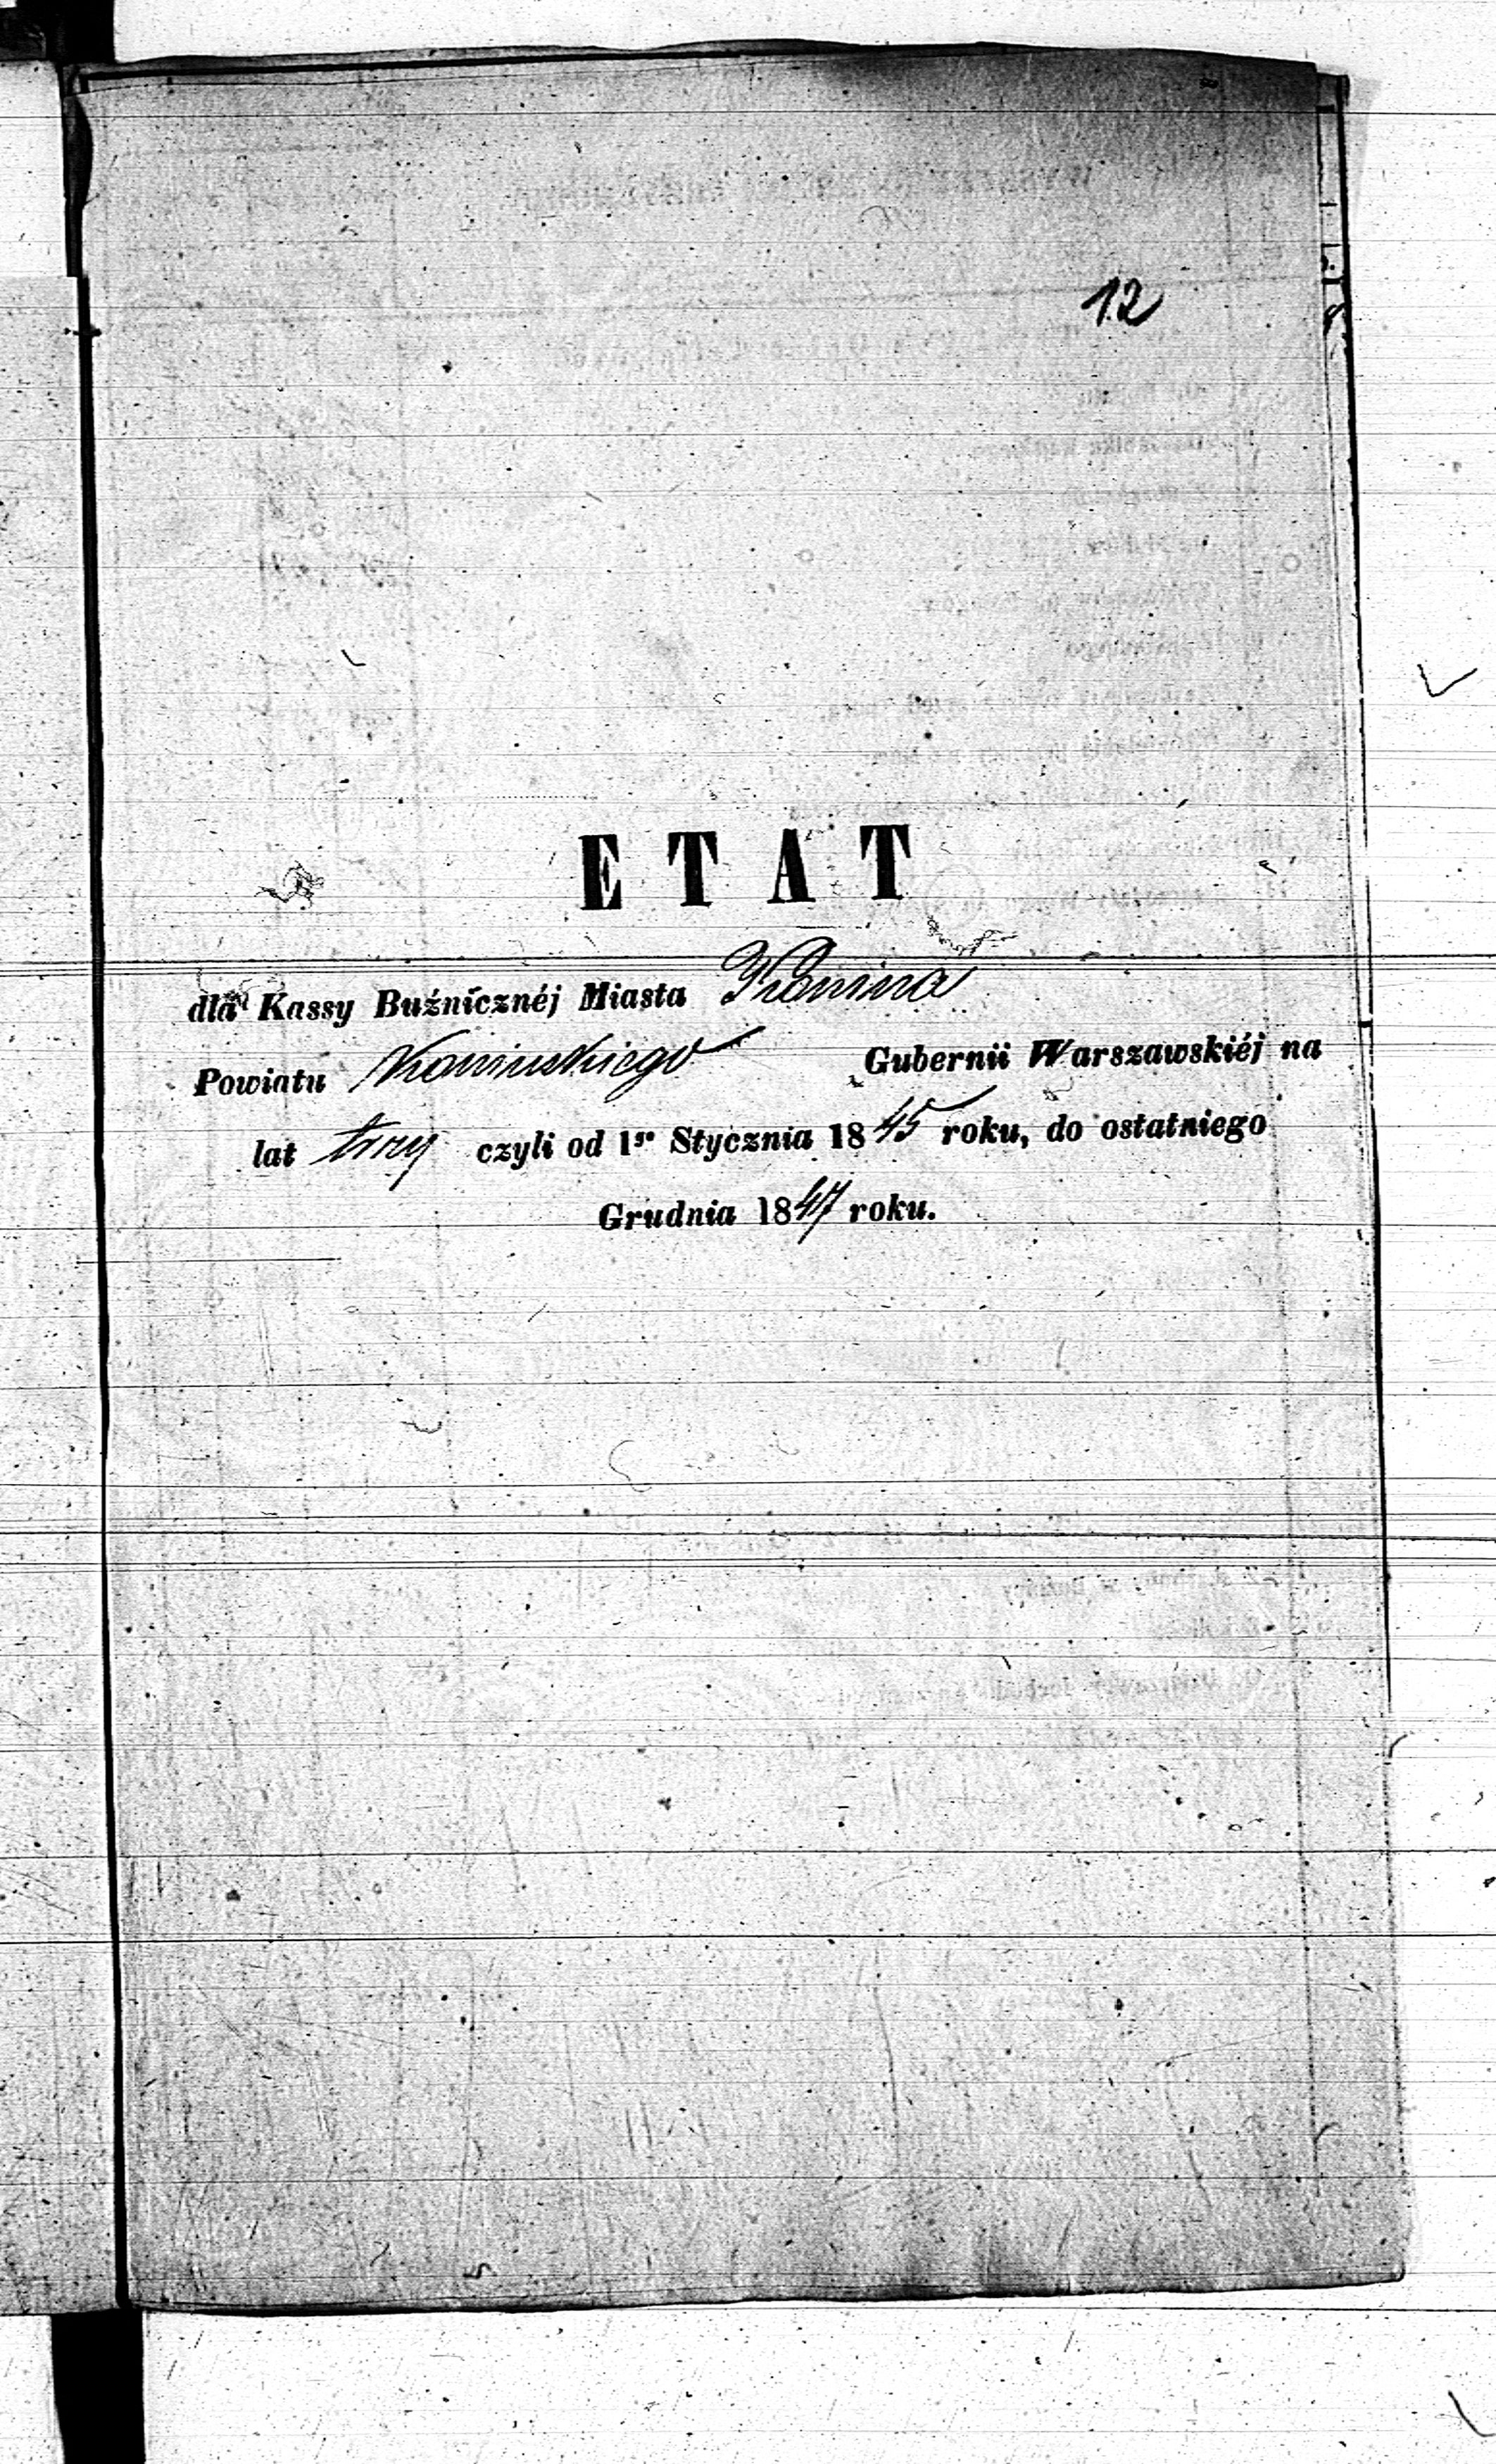 12
ETAT
dla Kassy Buźnicznéj Miasta Konina
Powiatu Konińskiego Gubernii Warszawskiéj na
lat trzy czyli od 1go Stycznia 1845 roku, do ostatniego
Grudnia 1847 roku.